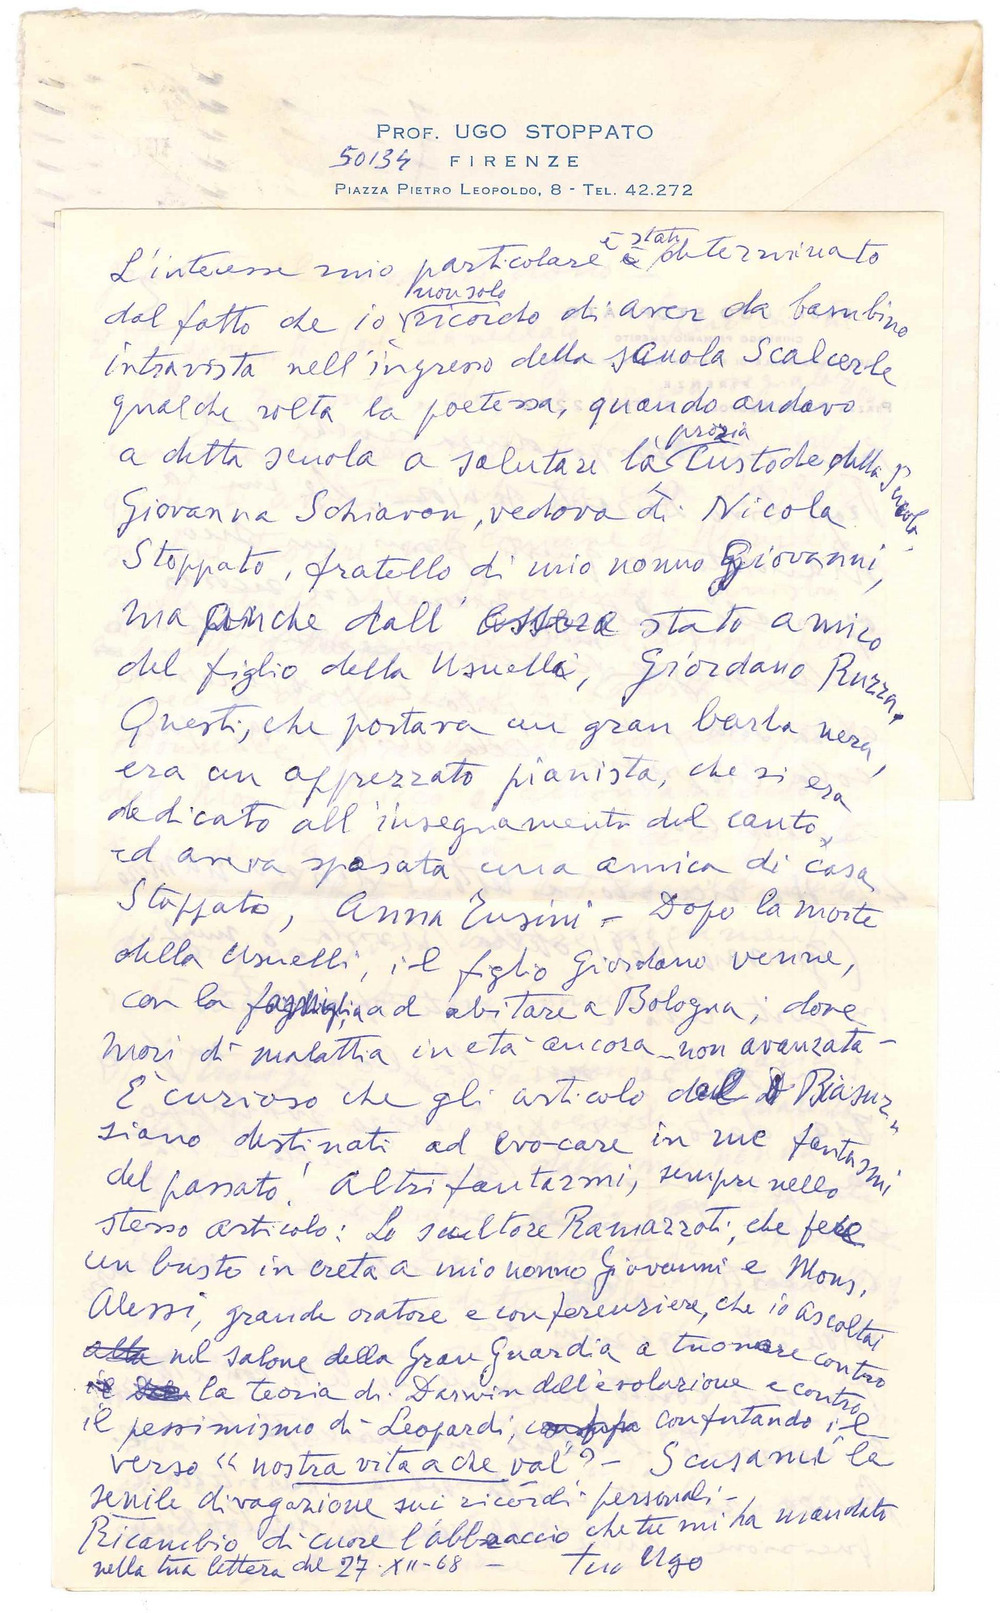 PROF. UGO STOPPATO
50134 FIRENZE
PIAZZA PIETRO LEOPOLDO, 8 - TEL. 42.272
L'interesse mio particolare è stato determinato
dal fatto che io non solo ricordo di aver da bambino
intravista nell'ingresso della scuola Scalcerle
qualche volta la poetessa, quando andavo
a detta scuola a salutare la prozia Custode della Scuola,
Giovanna Schiavon, vedova di Nicola
Stoppato, fratello di mio nonno Giovanni,
ma anche dall' essere stato amico
del figlio della Usuelli, Giordano Ruzza.
Questi, che portava un gran barba nera,
era un apprezzato pianista, che si era
dedicato all'insegnamento del canto,
ed aveva sposata una amica di casa
Stoppato, Anna Zusini - Dopo la morte
della Usuelli, il figlio Giordano venne,
con la famiglia ad abitare a Bologna; dove
morì di malattia in età ancora non avanzata -
È curioso che gli articolo del Biasuz
siano destinati ad evocare in me fantasmi
del passato! Altri fantasmi, sempre nello
stesso articolo: Lo scultore Ramazzoti, che fece
un busto in creta a mio nonno Giovanni e Mons.
Alessi, grande oratore e conferenziere, che io ascoltai
nel salone della Gran Guardia a tuonare contro
la teoria di Darwin dell'evoluzione e contro
il pessimismo di Leopardi, confutando il
verso "nostra vita a che val"? - Scusami la
senile divagazione sui ricordi personali -
Ricambio di cuore l'abbraccio che tu mi ha mandato
nella tua lettera del 27-XII-68 - Tuo Ugo